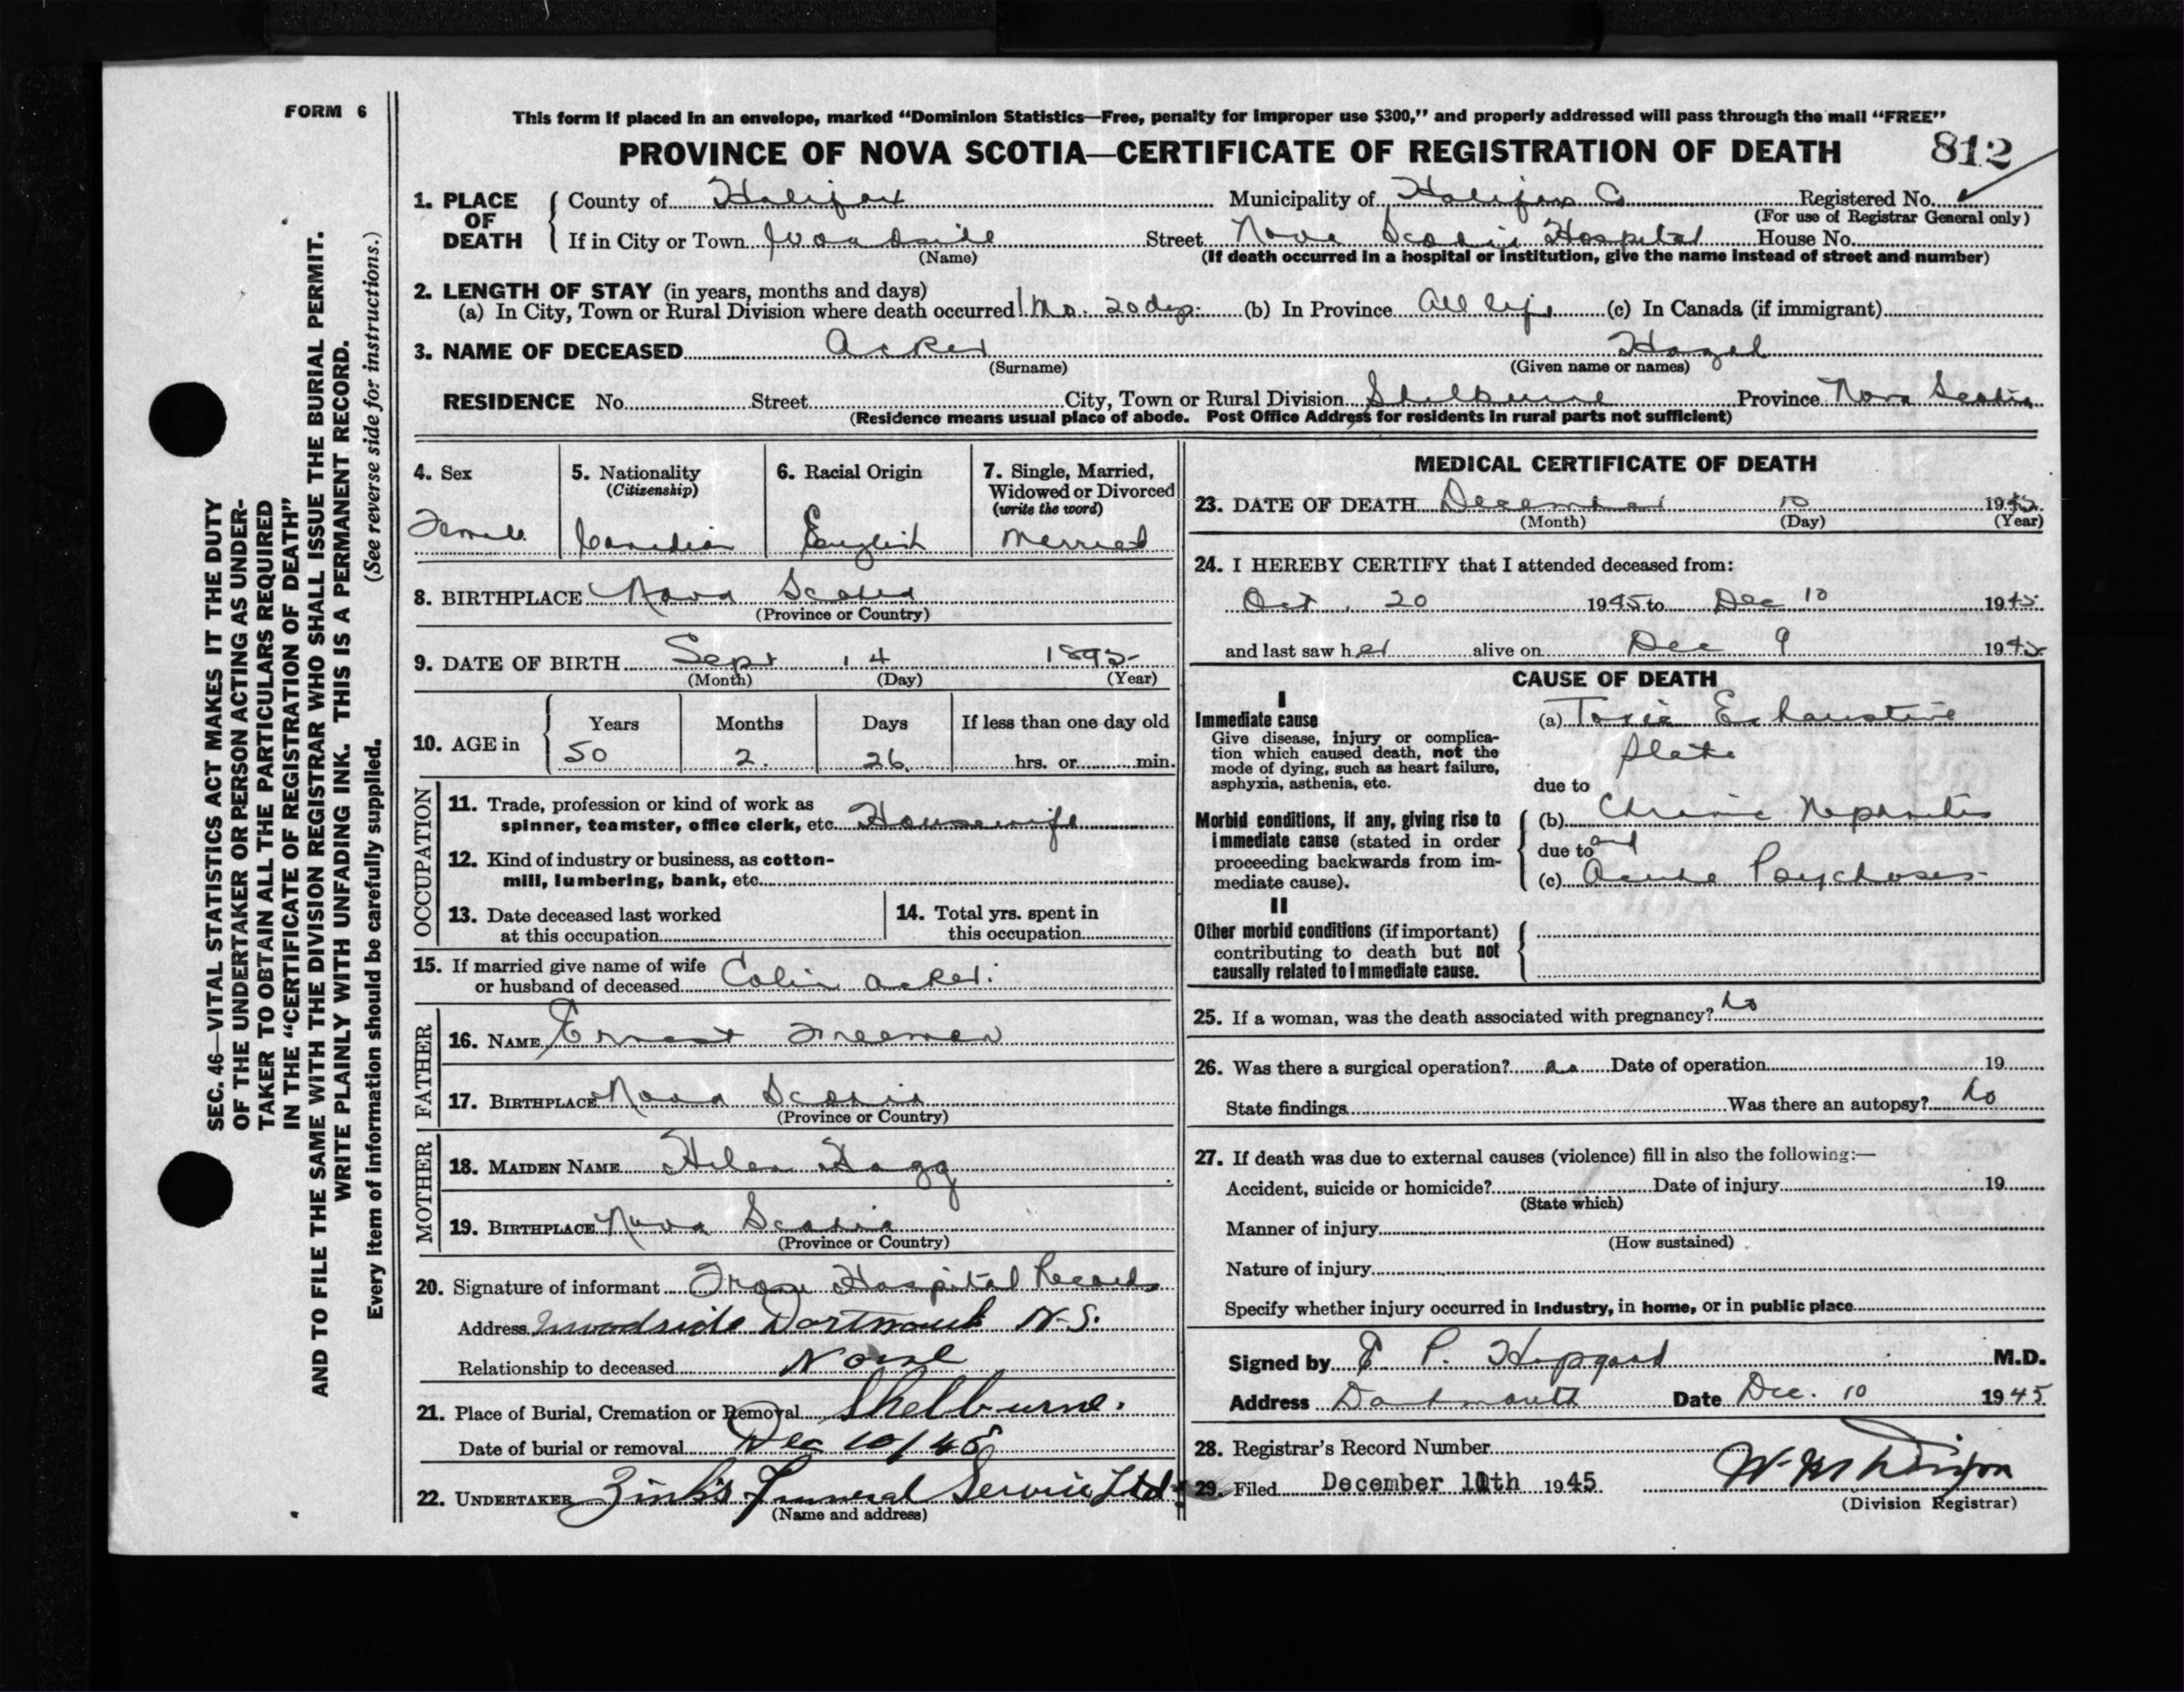 FORM 6
This form if placed in an envelope, marked "Dominion Statistics—Free, penalty for improper use $300," and properly addressed will pass through the mail "FREE"
PROVINCE OF NOVA SCOTIA—CERTIFICATE OF REGISTRATION OF DEATH 812
1. PLACE OF DEATH County of Halifax Municipality of Halifax Co Registered No.
(For use of Registrar General only)
If in City or Town Woodside Street Nova Scotia Hospital House No.
(Name) (If death occurred in a hospital or institution, give the name instead of street and number)
2. LENGTH OF STAY (in years, months and days)
(a) In City, Town or Rural Division where death occurred 1 Mo. 20 dys. (b) In Province All life (c) In Canada (if immigrant)
3. NAME OF DECEASED Acker Hazel
(Surname) (Given name or names)
RESIDENCE No. Street City, Town or Rural Division Shelburne Province Nova Scotia
(Residence means usual place of abode. Post Office Address for residents in rural parts not sufficient)
4. Sex 5. Nationality 6. Racial Origin 7. Single, Married,
(Citizenship) Widowed or Divorced
(write the word)
Female Canadian English Married
8. BIRTHPLACE Nova Scotia
(Province or Country)
9. DATE OF BIRTH Sept 14 1895
(Month) (Day) (Year)
10. AGE in Years Months Days If less than one day old
50 2. 26 hrs. or min.
OCCUPATION
11. Trade, profession or kind of work as
spinner, teamster, office clerk, etc. Housewife
12. Kind of industry or business, as cotton-
mill, lumbering, bank, etc.
13. Date deceased last worked
at this occupation
14. Total yrs. spent in
this occupation
15. If married give name of wife
or husband of deceased Colin Acker.
FATHER
16. NAME Ernest Freeman
17. BIRTHPLACE Nova Scotia
(Province or Country)
MOTHER
18. MAIDEN NAME Helen Hagg
19. BIRTHPLACE Nova Scotia
(Province or Country)
20. Signature of informant From Hospital Records
Address Woodside Dartmouth N.S.
Relationship to deceased None
21. Place of Burial, Cremation or Removal Shelburne.
Date of burial or removal Dec 10/45
22. UNDERTAKER Zink's Funeral Service Ltd.
(Name and address)
MEDICAL CERTIFICATE OF DEATH
23. DATE OF DEATH December 10 1945
(Month) (Day) (Year)
24. I HEREBY CERTIFY that I attended deceased from:
Oct. 20 1945 to Dec 10 1945
and last saw her alive on Dec 9 1945
CAUSE OF DEATH
I
Immediate cause
Give disease, injury or complica-
tion which caused death, not the
mode of dying, such as heart failure,
asphyxia, asthenia, etc.
(a) Toxic Exhaustive
State
due to
Morbid conditions, if any, giving rise to
immediate cause (stated in order
proceeding backwards from im-
mediate cause).
(b) Chronic Nephritis
due to and
(c) Acute Psychoses
II
Other morbid conditions (if important)
contributing to death but not
causally related to immediate cause.
25. If a woman, was the death associated with pregnancy? No
26. Was there a surgical operation? no Date of operation 19
State findings Was there an autopsy? No
27. If death was due to external causes (violence) fill in also the following:—
Accident, suicide or homicide? Date of injury 19
(State which)
Manner of injury
(How sustained)
Nature of injury
Specify whether injury occurred in industry, in home, or in public place
Signed by P. Hopgood M.D.
Address Dartmouth Date Dec. 10 1945
28. Registrar's Record Number
29. Filed December 10th 1945
(Division Registrar)
SEC. 46—VITAL STATISTICS ACT MAKES IT THE DUTY
OF THE UNDERTAKER OR PERSON ACTING AS UNDER-
TAKER TO OBTAIN ALL THE PARTICULARS REQUIRED
IN THE "CERTIFICATE OF REGISTRATION OF DEATH"
AND TO FILE THE SAME WITH THE DIVISION REGISTRAR WHO SHALL ISSUE THE BURIAL PERMIT.
WRITE PLAINLY WITH UNFADING INK. THIS IS A PERMANENT RECORD.
Every item of information should be carefully supplied. (See reverse side for instructions.)